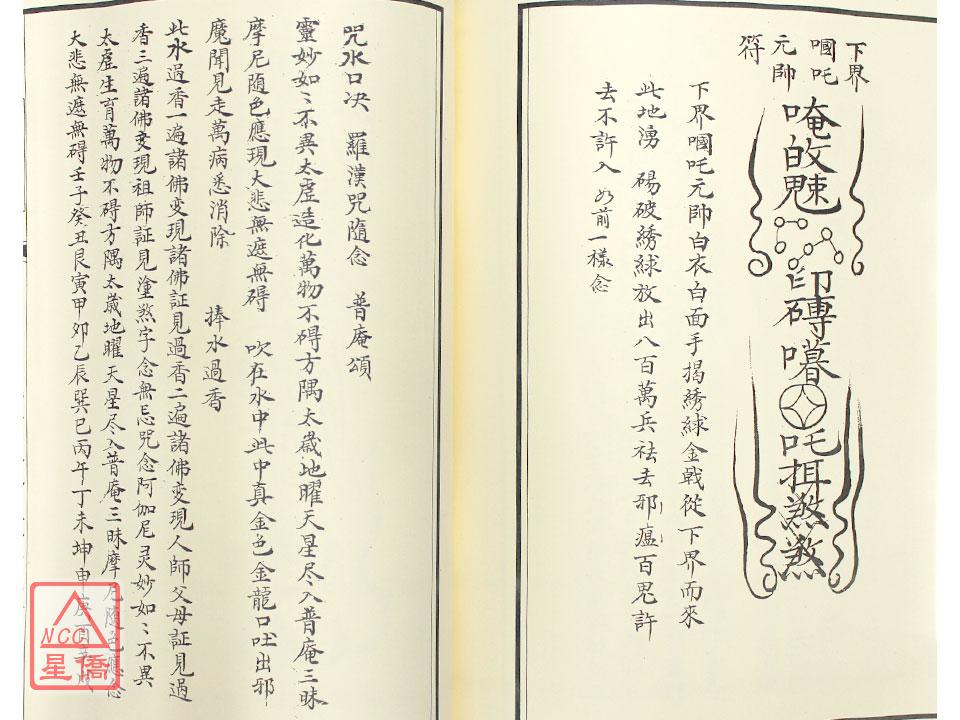 下界
嘓吒
元帥
符
唵的魁
印磚㗶
吒挕煞煞
下界嘓吒元帥白衣白面手揭綉球金戟從下界而來
此地湧　碭破綉綠放出八百萬兵祛去邪瘟百鬼許
去不許入　如前一樣念
咒水口决　羅漢咒隨念　普庵頌
靈妙如〻不異太虛造化萬物不碍方隅太歲地曜天星尽入普庵三昧
摩尼随色應現大悲無遮無碍　吹在水中此中真金色金龍口吐出邪
魔聞見走萬病悉消除　捧水過香
此水過香一遍諸佛变現諸佛証見過香二遍諸佛变現人師父母証見過
香三遍諸佛变現祖師証見塗煞字念無忌咒念阿伽尼灵妙如〻不異
太虛生育萬物不碍方隅太歲地曜天星尽入普庵三昧摩尼随色應念
大悲無遮無碍壬子癸丑艮寅甲夘乙辰巽巳丙午丁未坤申庚酉辛戌
NCC
星僑